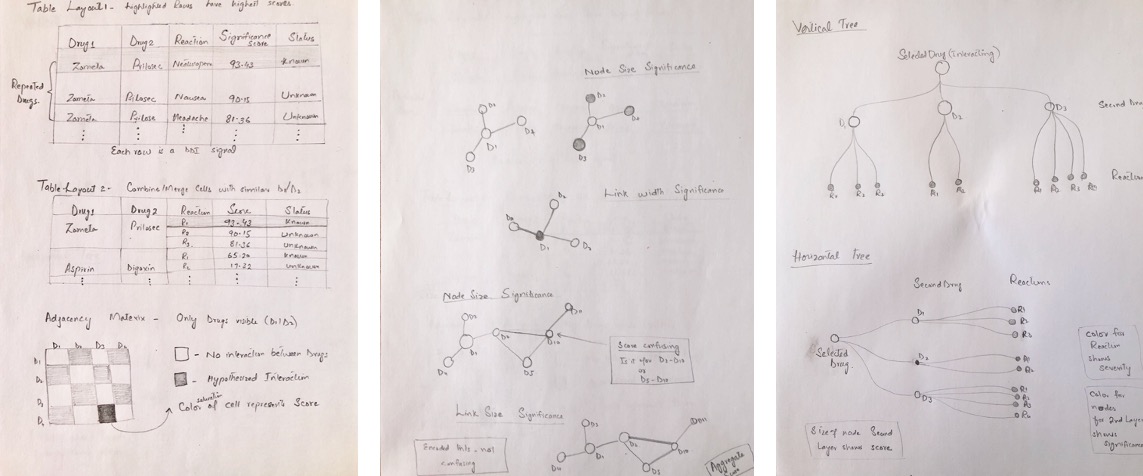 Table Layout 1 - highlighted Rows have highest scores
Drug1 Drug2 Reaction Significance Score Status
Zometa Prilosec 93.43 Known
Repeated Drugs.
Zometa Prilosec Nausea 90.15 Unknown
Zometa Prilosec Headache 81.36 Unknown
Each row is a DDI signal
Table Layout 2 - Combine/Merge Cells with similar D1/D2
Drug1 Drug2 Reaction Score Status
Zometa Prilosec R1 93.43 Known
R2 90.15 Unknown
R3 81.36 Unknown
R1 65.20 Known
Aspirin Digoxin R2 17.22 Unknown
Adjacency Matrix - Only Drugs visible (D1/D2)
D1 D2 D3 D4
D1
D2
D3
D4
- No interaction between Drugs
- Hypothesized Interaction
Color saturation of cell represents Score
Node Size Significance
D2
D4
D1
D3
D2
D4
D1
D3
Link width Significance
D4
D1
D2
Node Size Significance
D3
D2
D1
D4
D5
D10
Score confusing
Is it for D2-D10
or
D5-D10
Link Size Significance
D3
D1
D2
D4
D5
D10
D11
Encoded this - not
confusing
Aggregate
Vertical Tree
Selected Drug (Interacting)
D1 D2 D3
Second Dru
R1 R2 R3 R1 R2 R1 R2 R3 R4
Reaction
Horizontal Tree
Second Drug Reactions
Selected
Drug.
D1
D2
D3
R1
R2
R3
R1
R2
R1
R2
R3
R4
Color for
Reaction
shows
severity
Color for
nodes
for 2nd Layer
shows
significance
Size of node Second
Layer shows score